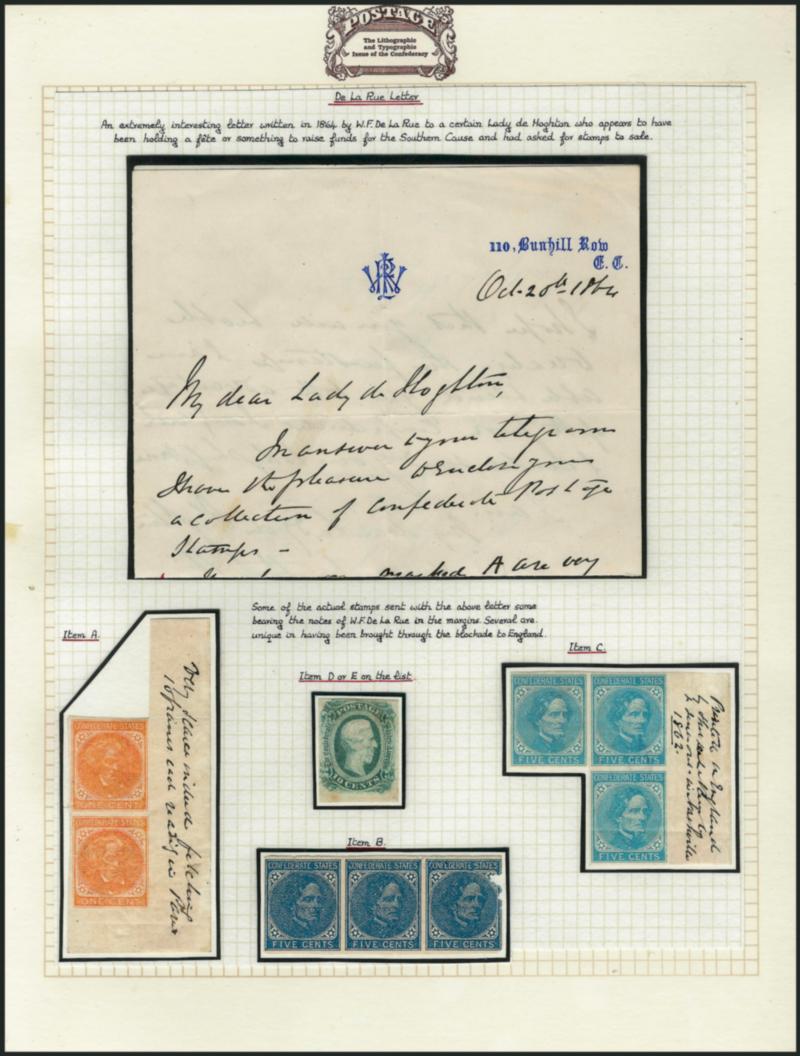 POSTAGE
The Lithographic
and Typographic
Issue of the Confederacy
De La Rue Letter
An extremely interesting letter written in 1864 by W.F. De La Rue to a certain Lady de Hoghton who appears to have
been holding a fête or something to raise funds for the Southern Cause and had asked for stamps to sale.
110, Bunhill Row
E. C.
Oct. 20th 1864
My dear Lady de Hoghton,
In answer to your telegram
I have the pleasure to enclose you
a collection of Confederate Postage
Stamps –
marked A are very
Some of the actual stamps sent with the above letter some
bearing the notes of W.F. De La Rue in the margins. Several are
unique in having been brought through the blockade to England.
Item A.
Very scarce indeed fetching
10 francs each readily in Paris
CONFEDERATE STATES
ONE CENT
CONFEDERATE STATES
ONE CENT
Item D or E on the list
POSTAGE
10 CENTS
Item C.
CONFEDERATE STATES
FIVE CENTS
CONFEDERATE STATES
FIVE CENTS
CONFEDERATE STATES
FIVE CENTS
Printed in England
by
1862.
Item B.
CONFEDERATE STATES
FIVE CENTS
CONFEDERATE STATES
FIVE CENTS
CONFEDERATE STATES
FIVE CENTS